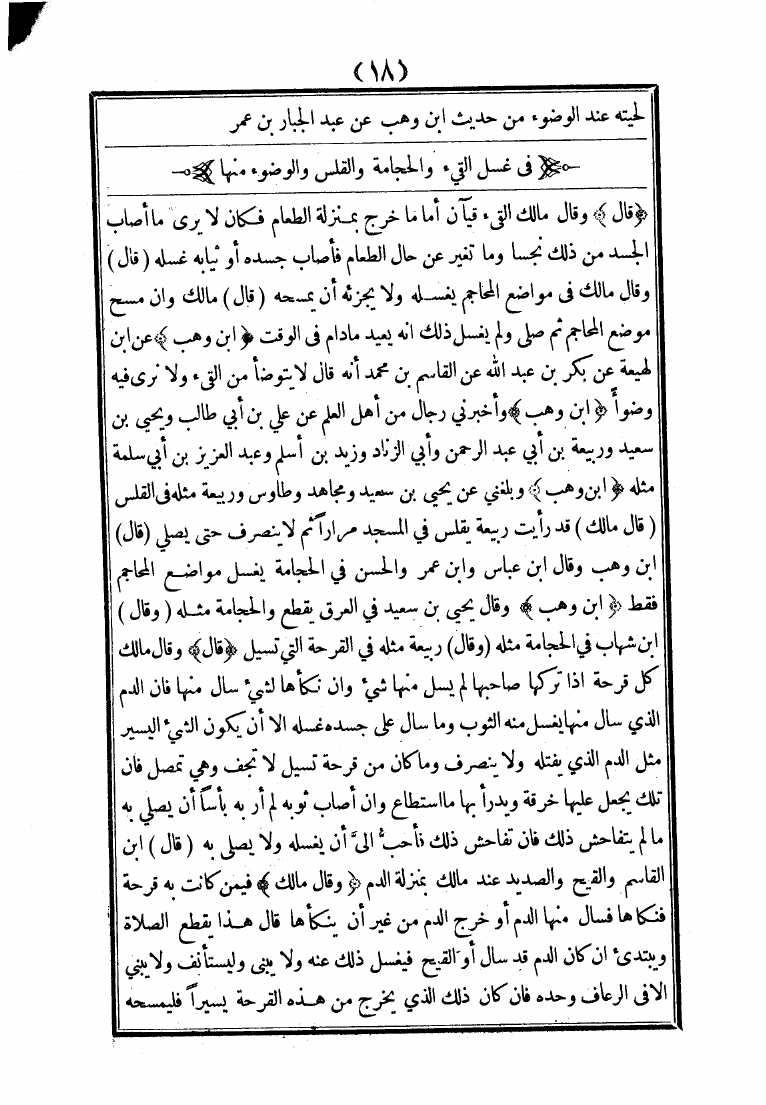 (١٨)
لحيته عند الوضوء من حديث ابن وهب عن عبد الجبار بن عمر
فى غسل القيء والحجامة والقلس والوضوء منها
﴿قال﴾ وقال مالك القيء قيآن أما ما خرج بمنزلة الطعام فكان لا يرى ما أصاب
الجسد من ذلك نجسا وما تغير عن حال الطعام فأصاب جسده أو ثيابه غسله (قال)
وقال مالك فى مواضع المحاجم يغسله ولا يجزئه أن يمسحه (قال) مالك وان مسح
موضع المحاجم ثم صلى ولم يغسل ذلك انه يعيد مادام فى الوقت ﴿ابن وهب﴾ عن ابن
لهيعة عن بكر بن عبد الله عن القاسم بن محمد أنه قال لا يتوضأ من القيء ولا نرى فيه
وضوأً ﴿ابن وهب﴾ وأخبرني رجال من أهل العلم عن علي بن أبي طالب ويحيى بن
سعيد وربيعة بن أبي عبد الرحمن وأبي الزناد وزيد بن أسلم وعبد العزيز بن أبي سلمة
مثله ﴿ابن وهب﴾ وبلغني عن يحيى بن سعيد ومجاهد وطاوس وربيعة مثله فى القلس
(قال مالك) قد رأيت ربيعة يقلس في المسجد مراراً ثم لا ينصرف حتى يصلي (قال)
ابن وهب وقال ابن عباس وابن عمر والحسن في الحجامة يغسل مواضع المحاجم
فقط ﴿ابن وهب﴾ وقال يحيى بن سعيد في العرق يقطع والحجامة مثله (وقال)
ابن شهاب في الحجامة مثله (وقال) ربيعة مثله في القرحة التي تسيل ﴿قال﴾ وقال مالك
كل قرحة اذا تركها صاحبها لم يسل منها شيء وان نكأها لشيء سال منها فان الدم
الذي سال منها يغسل منه الثوب وما سال على جسده غسله الا أن يكون الشيء اليسير
مثل الدم الذي يفتله ولا ينصرف وما كان من قرحة تسيل لا تجف وهي تمصل فان
تلك يجعل عليها خرقة ويدرأ بها ما استطاع وان أصاب ثوبه لم أر به بأساً أن يصلي به
ما لم يتفاحش ذلك فان تفاحش ذلك فأحبُّ الىَّ أن يغسله ولا يصلى به (قال) ابن
القاسم والقيح والصديد عند مالك بمنزلة الدم ﴿وقال مالك﴾ فيمن كانت به قرحة
فنكاها فسال منها الدم أو خرج الدم من غير أن ينكأها قال هذا يقطع الصلاة
ويبتدئ ان كان الدم قد سال أو القيح فيغسل ذلك عنه ولا يبنى وليستأنف ولا يبني
الا فى الرعاف وحده فان كان ذلك الذي يخرج من هذه القرحة يسيراً فليمسحه